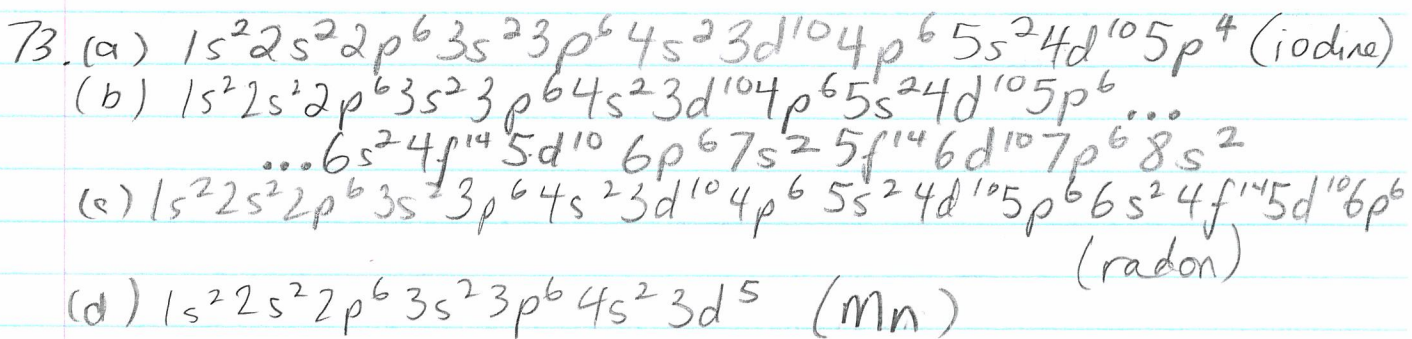 73. (a) 1s²2s²2p⁶3s²3p⁶4s²3d¹⁰4p⁶5s²4d¹⁰5p⁴ (iodine)
(b) 1s²2s²2p⁶3s²3p⁶4s²3d¹⁰4p⁶5s²4d¹⁰5p⁶...
...6s²4f¹⁴5d¹⁰6p⁶7s²5f¹⁴6d¹⁰7p⁶8s²
(c) 1s²2s²2p⁶3s²3p⁶4s²3d¹⁰4p⁶5s²4d¹⁰5p⁶6s²4f¹⁴5d¹⁰6p⁶
(radon)
(d) 1s²2s²2p⁶3s²3p⁶4s²3d⁵ (Mn)